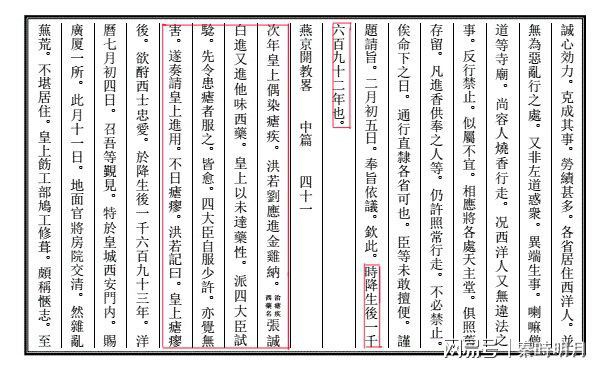 誠心効力。克成其事。勞績甚多。各省居住西洋人。並
無為惡亂行之處。又非左道惑衆。異端生事。喇嘛僧
道等寺廟。尚容人燒香行走。况西洋人又無違法之
事。反行禁止。似屬不宜。相應將各處天主堂。俱照舊
存留。凡進香供奉之人等。仍許照常行走。不必禁止。
俟命下之日。通行直隸各省可也。臣等未敢擅便。謹
題請旨。二月初五日。奉旨依議。欽此。時降生後一千
六百九十二年也。
燕京開教畧 中篇 四十一
次年皇上偶染瘧疾。洪若劉應進金雞納。治瘧疾西藥名張誠
白進又進他味西藥。皇上以未達藥性。派四大臣試
驗。先令患瘧者服之。皆愈。四大臣自服少許。亦覺無
害。遂奏請皇上進用。不日瘧瘳。洪若記曰。皇上瘧瘳
後。欲酧西士忠愛。於降生後一千六百九十三年。洋
曆七月初四日。召吾等覲見。特於皇城西安門內。賜
廣厦一所。此月十一日。地面官將房院交清。然雜亂
蕪荒。不堪居住。皇上飭工部鳩工修葺。頗稱愜志。至
网易号 | 秦時明月